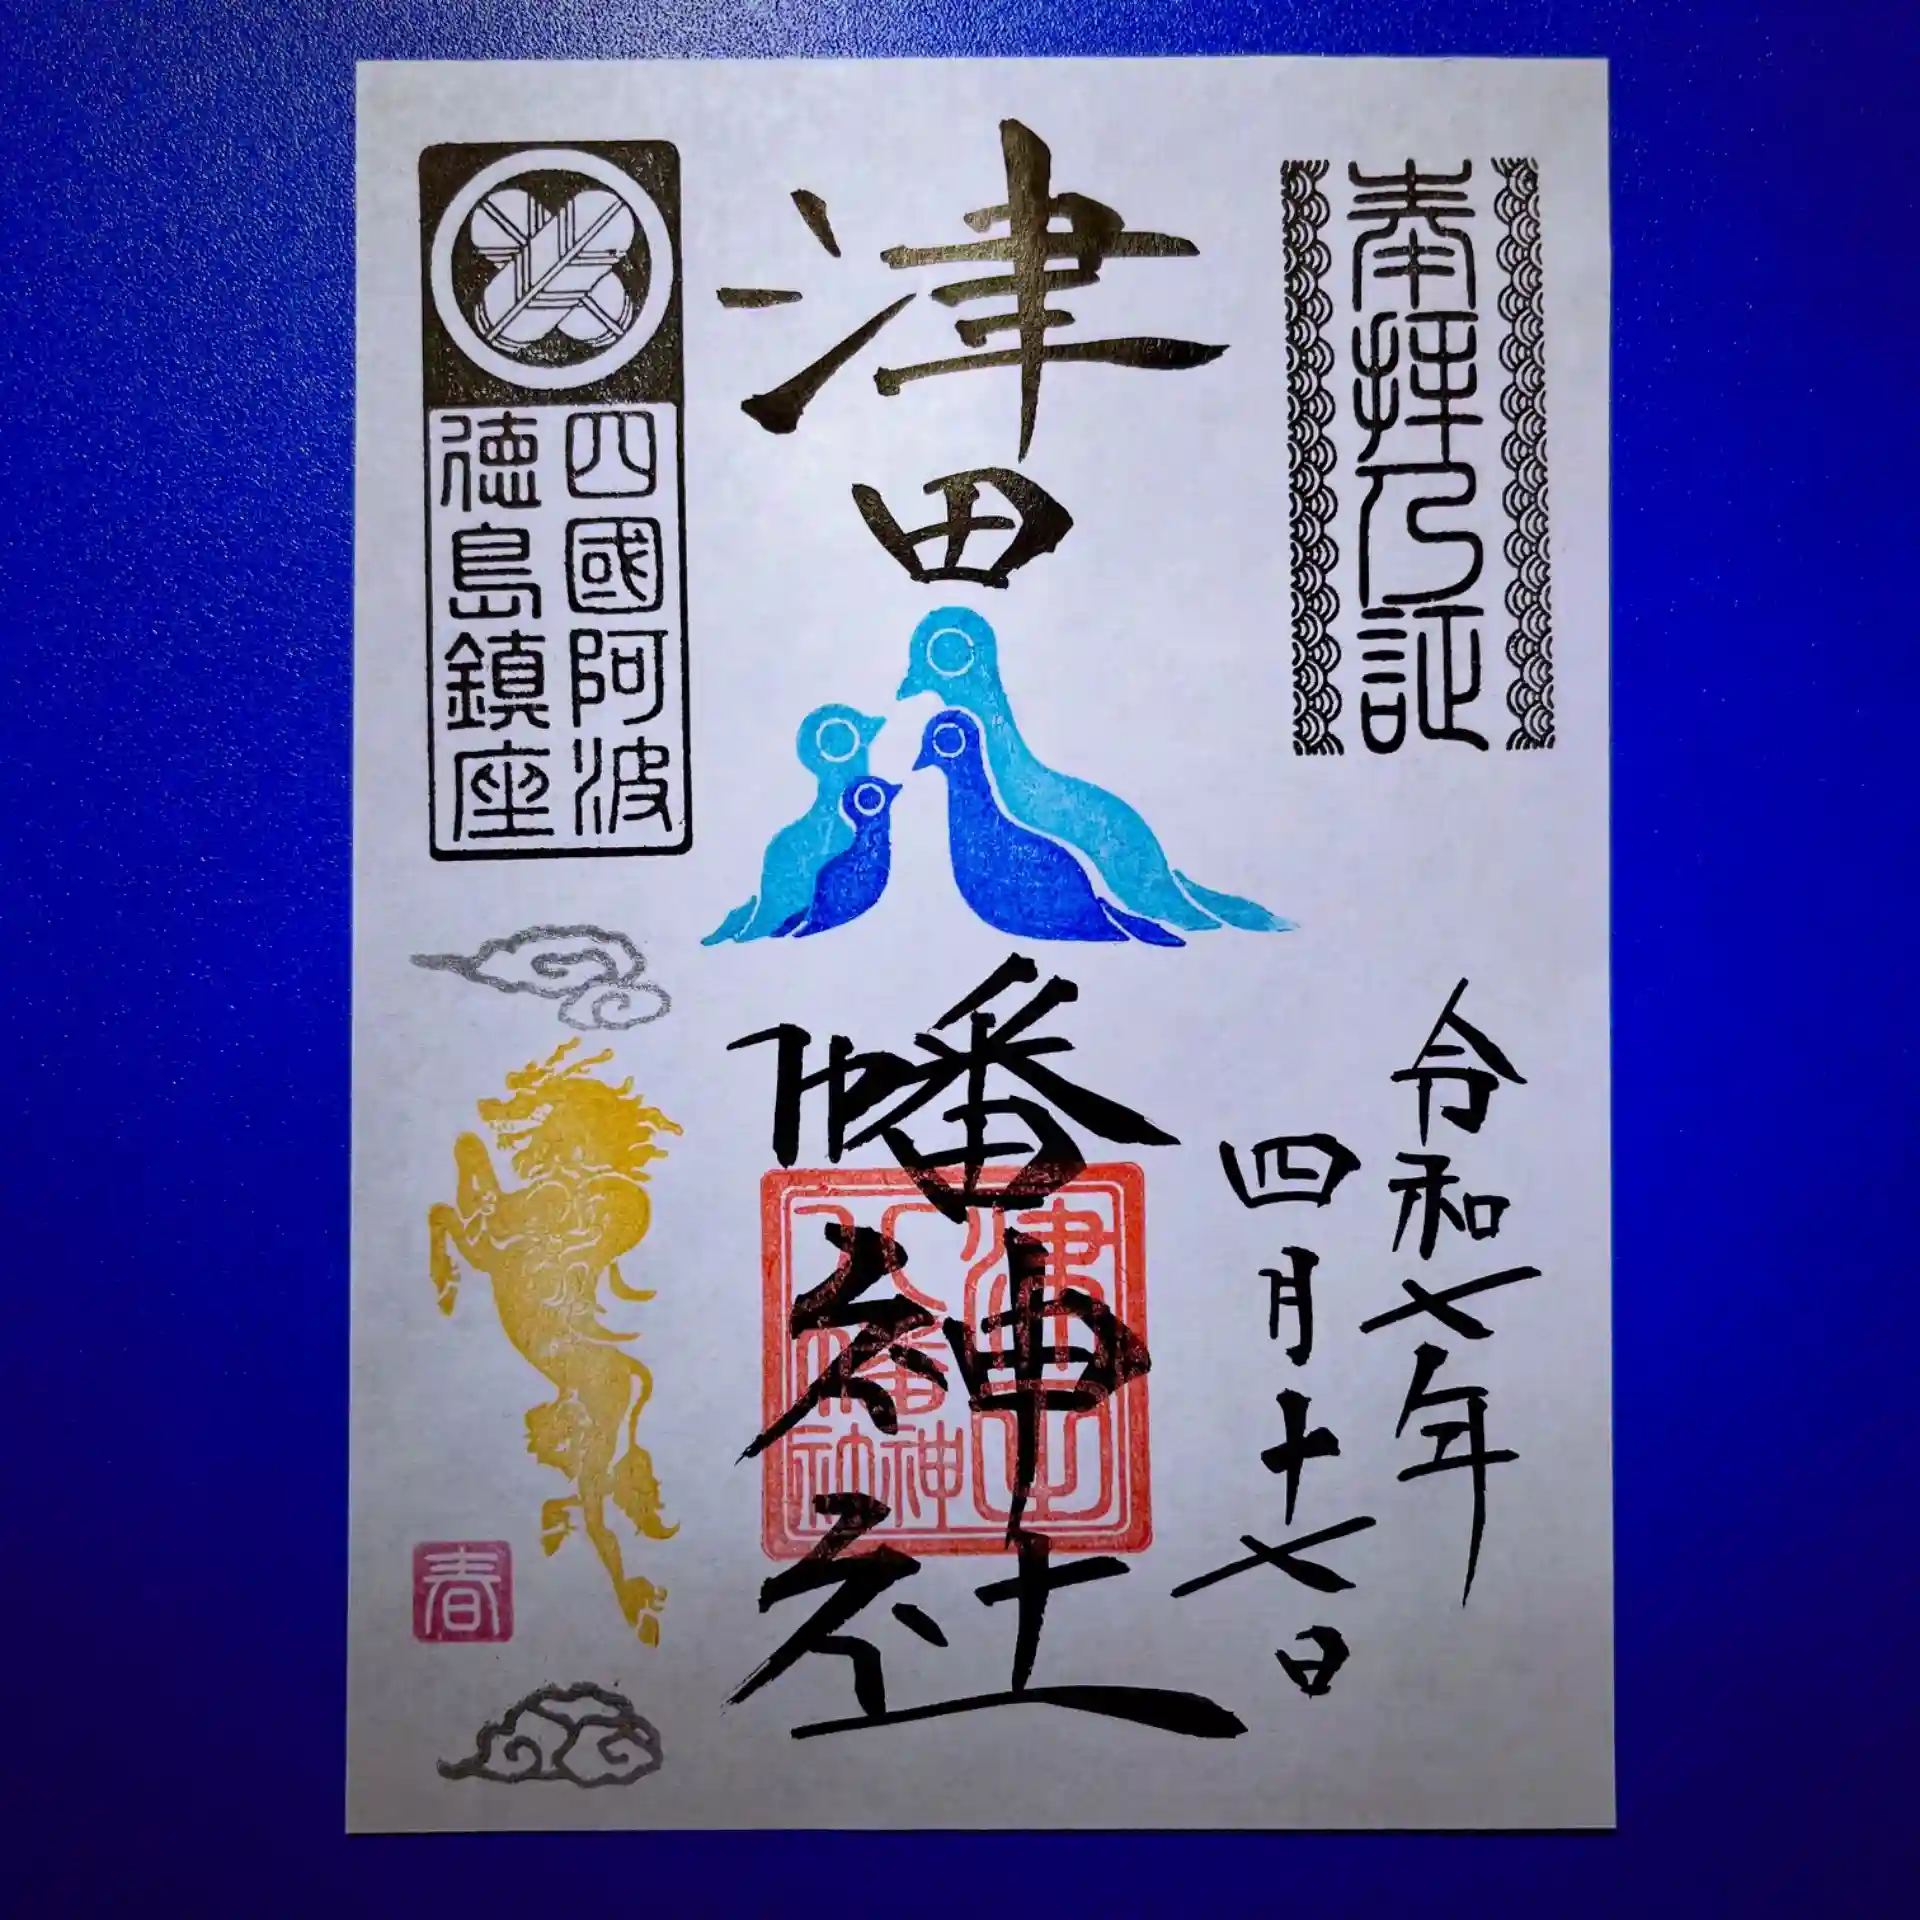 奉拝乃証
令和七年
四月十七日
津田八幡神社
津田
八幡
神社
四國阿波
徳島鎮座
春